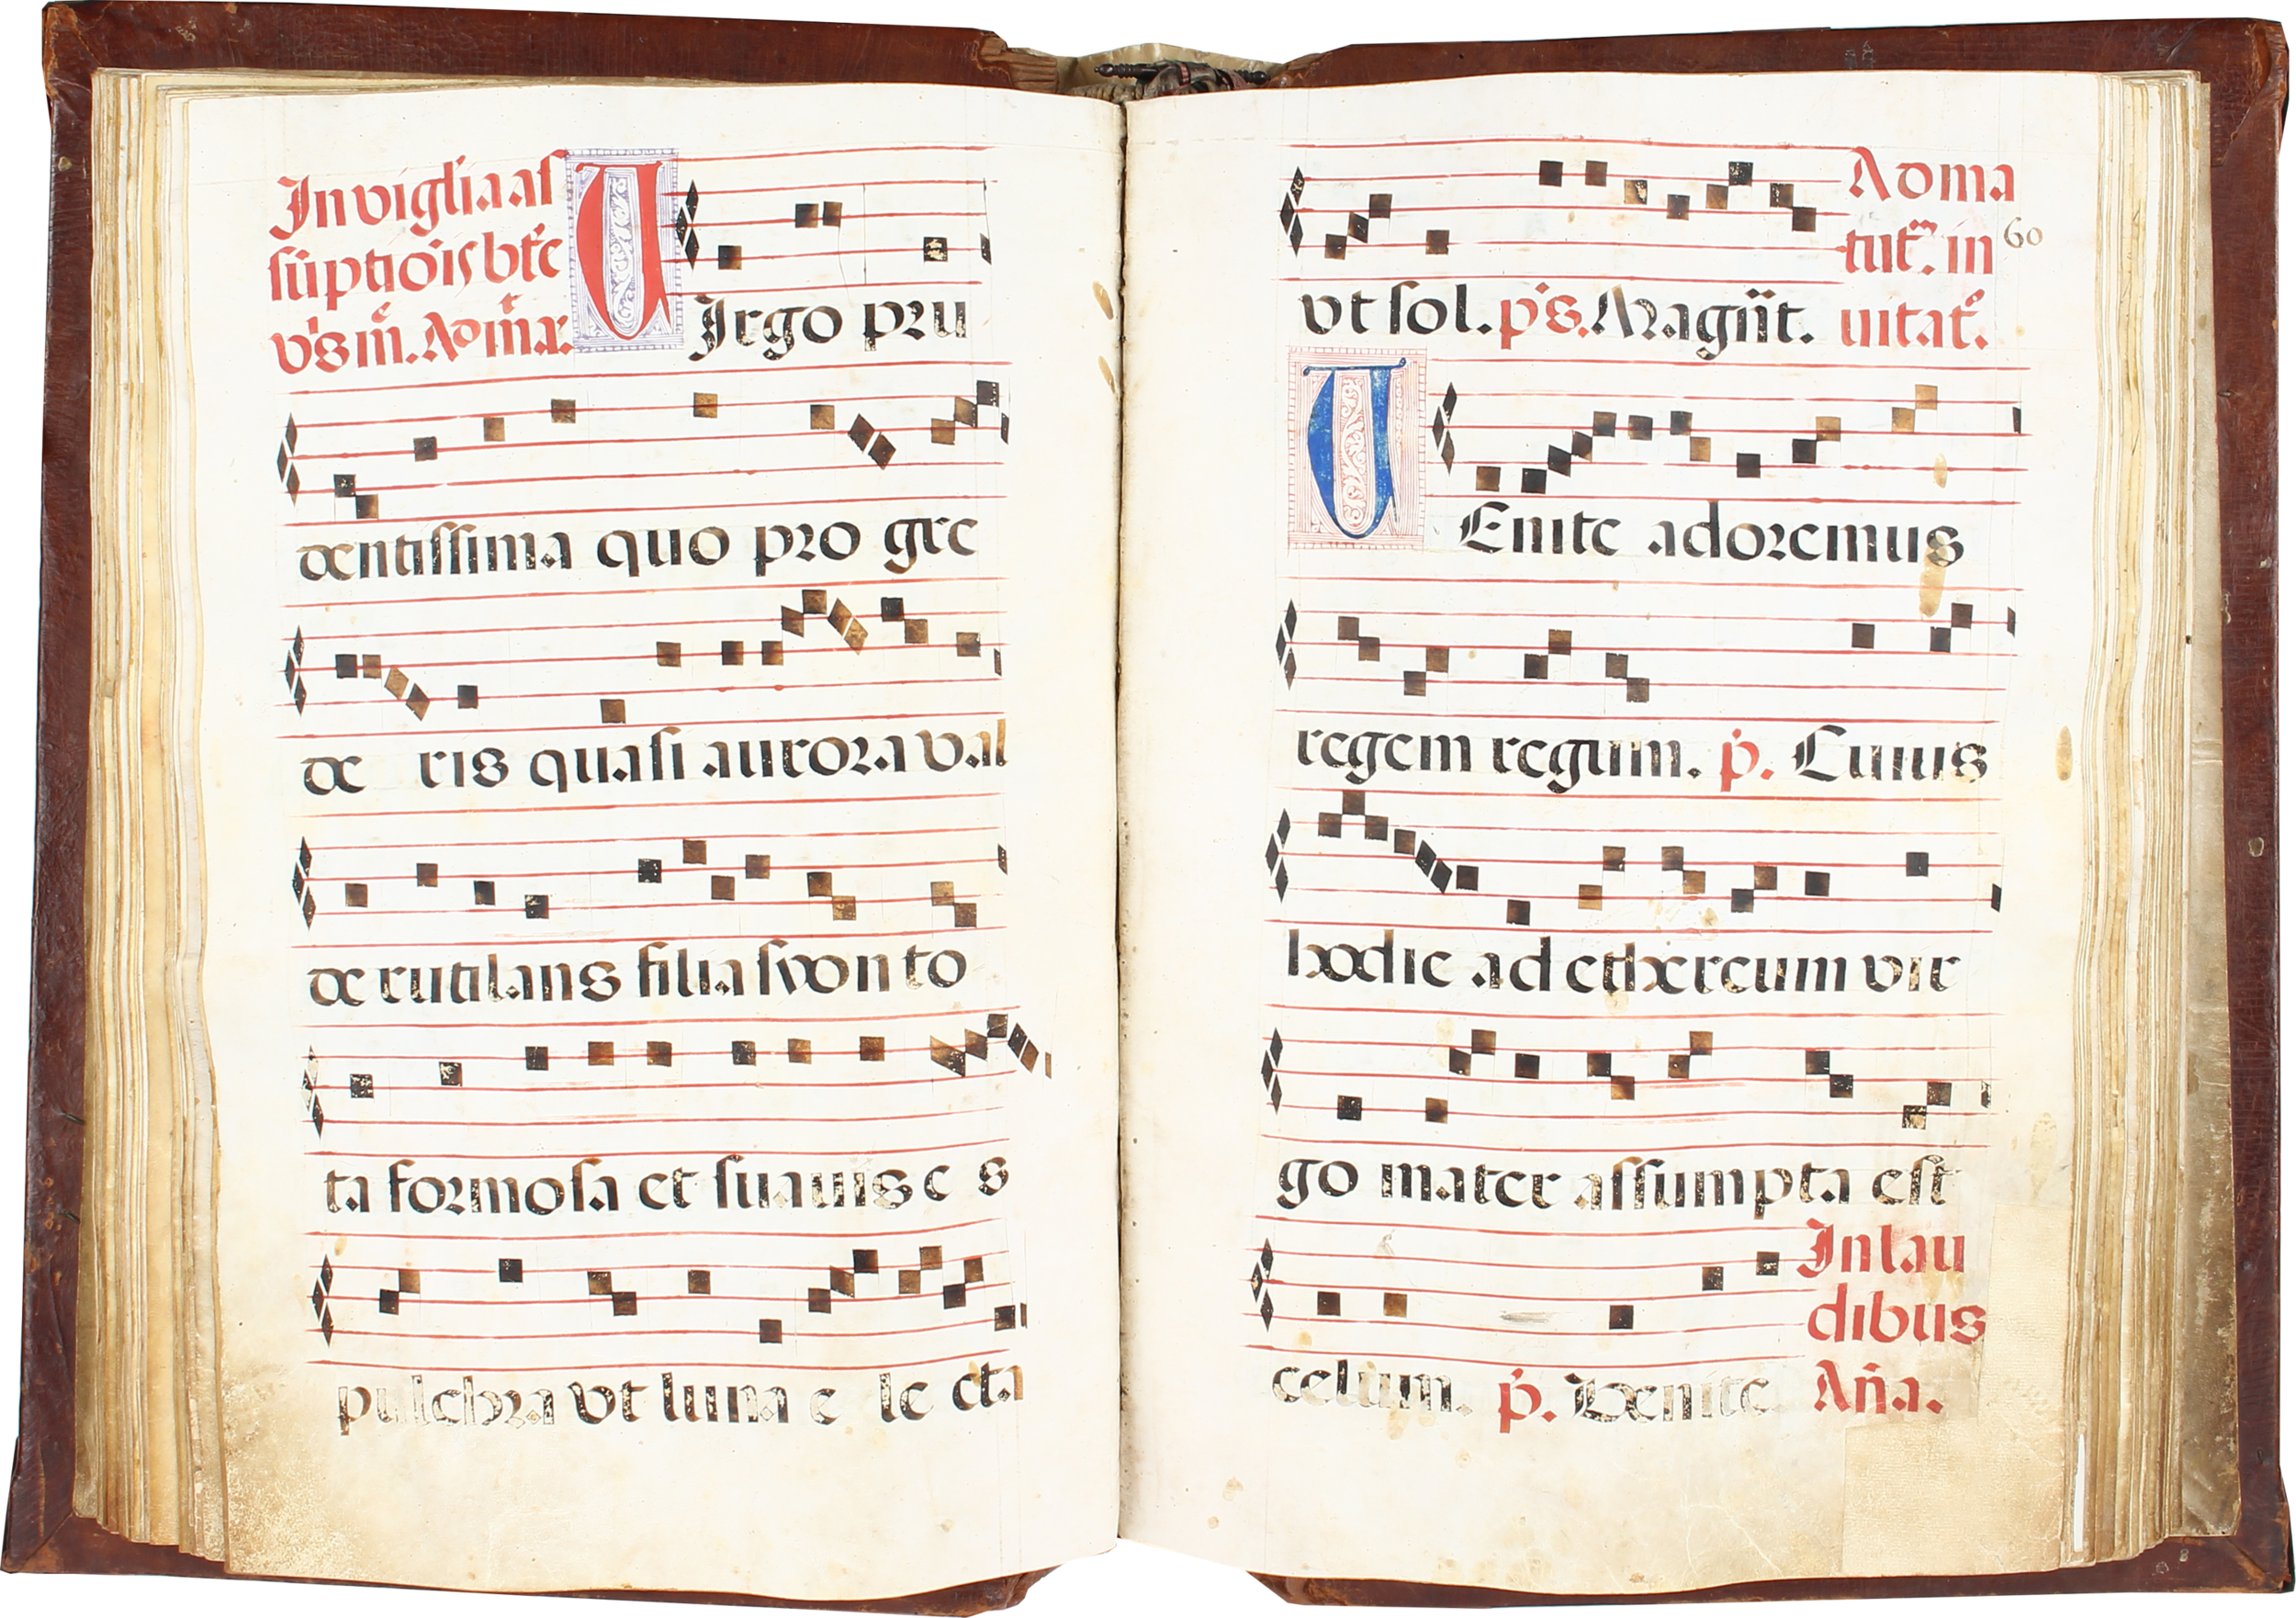 In vigilia aſ
ſūptiōis btē
v̾g̾ m̄. Ad m̄a.
VIrgo pru
dentiſſima quo pro gre
de ris quaſi aurora val
de rutilans filia ſyon to
ta formoſa et ſuauis e s
pulchra vt luna e le cta
vt ſol. p̾s. Magn̄t.
Ad ma
tut̄. in
uitat̄.
60
VEnite adoremus
regem regum. p̄. Cuius
hodie ad ethereum vir
go mater aſſumpta eſt
celum. p̄. Venite
In lau
dibus
An̄a.